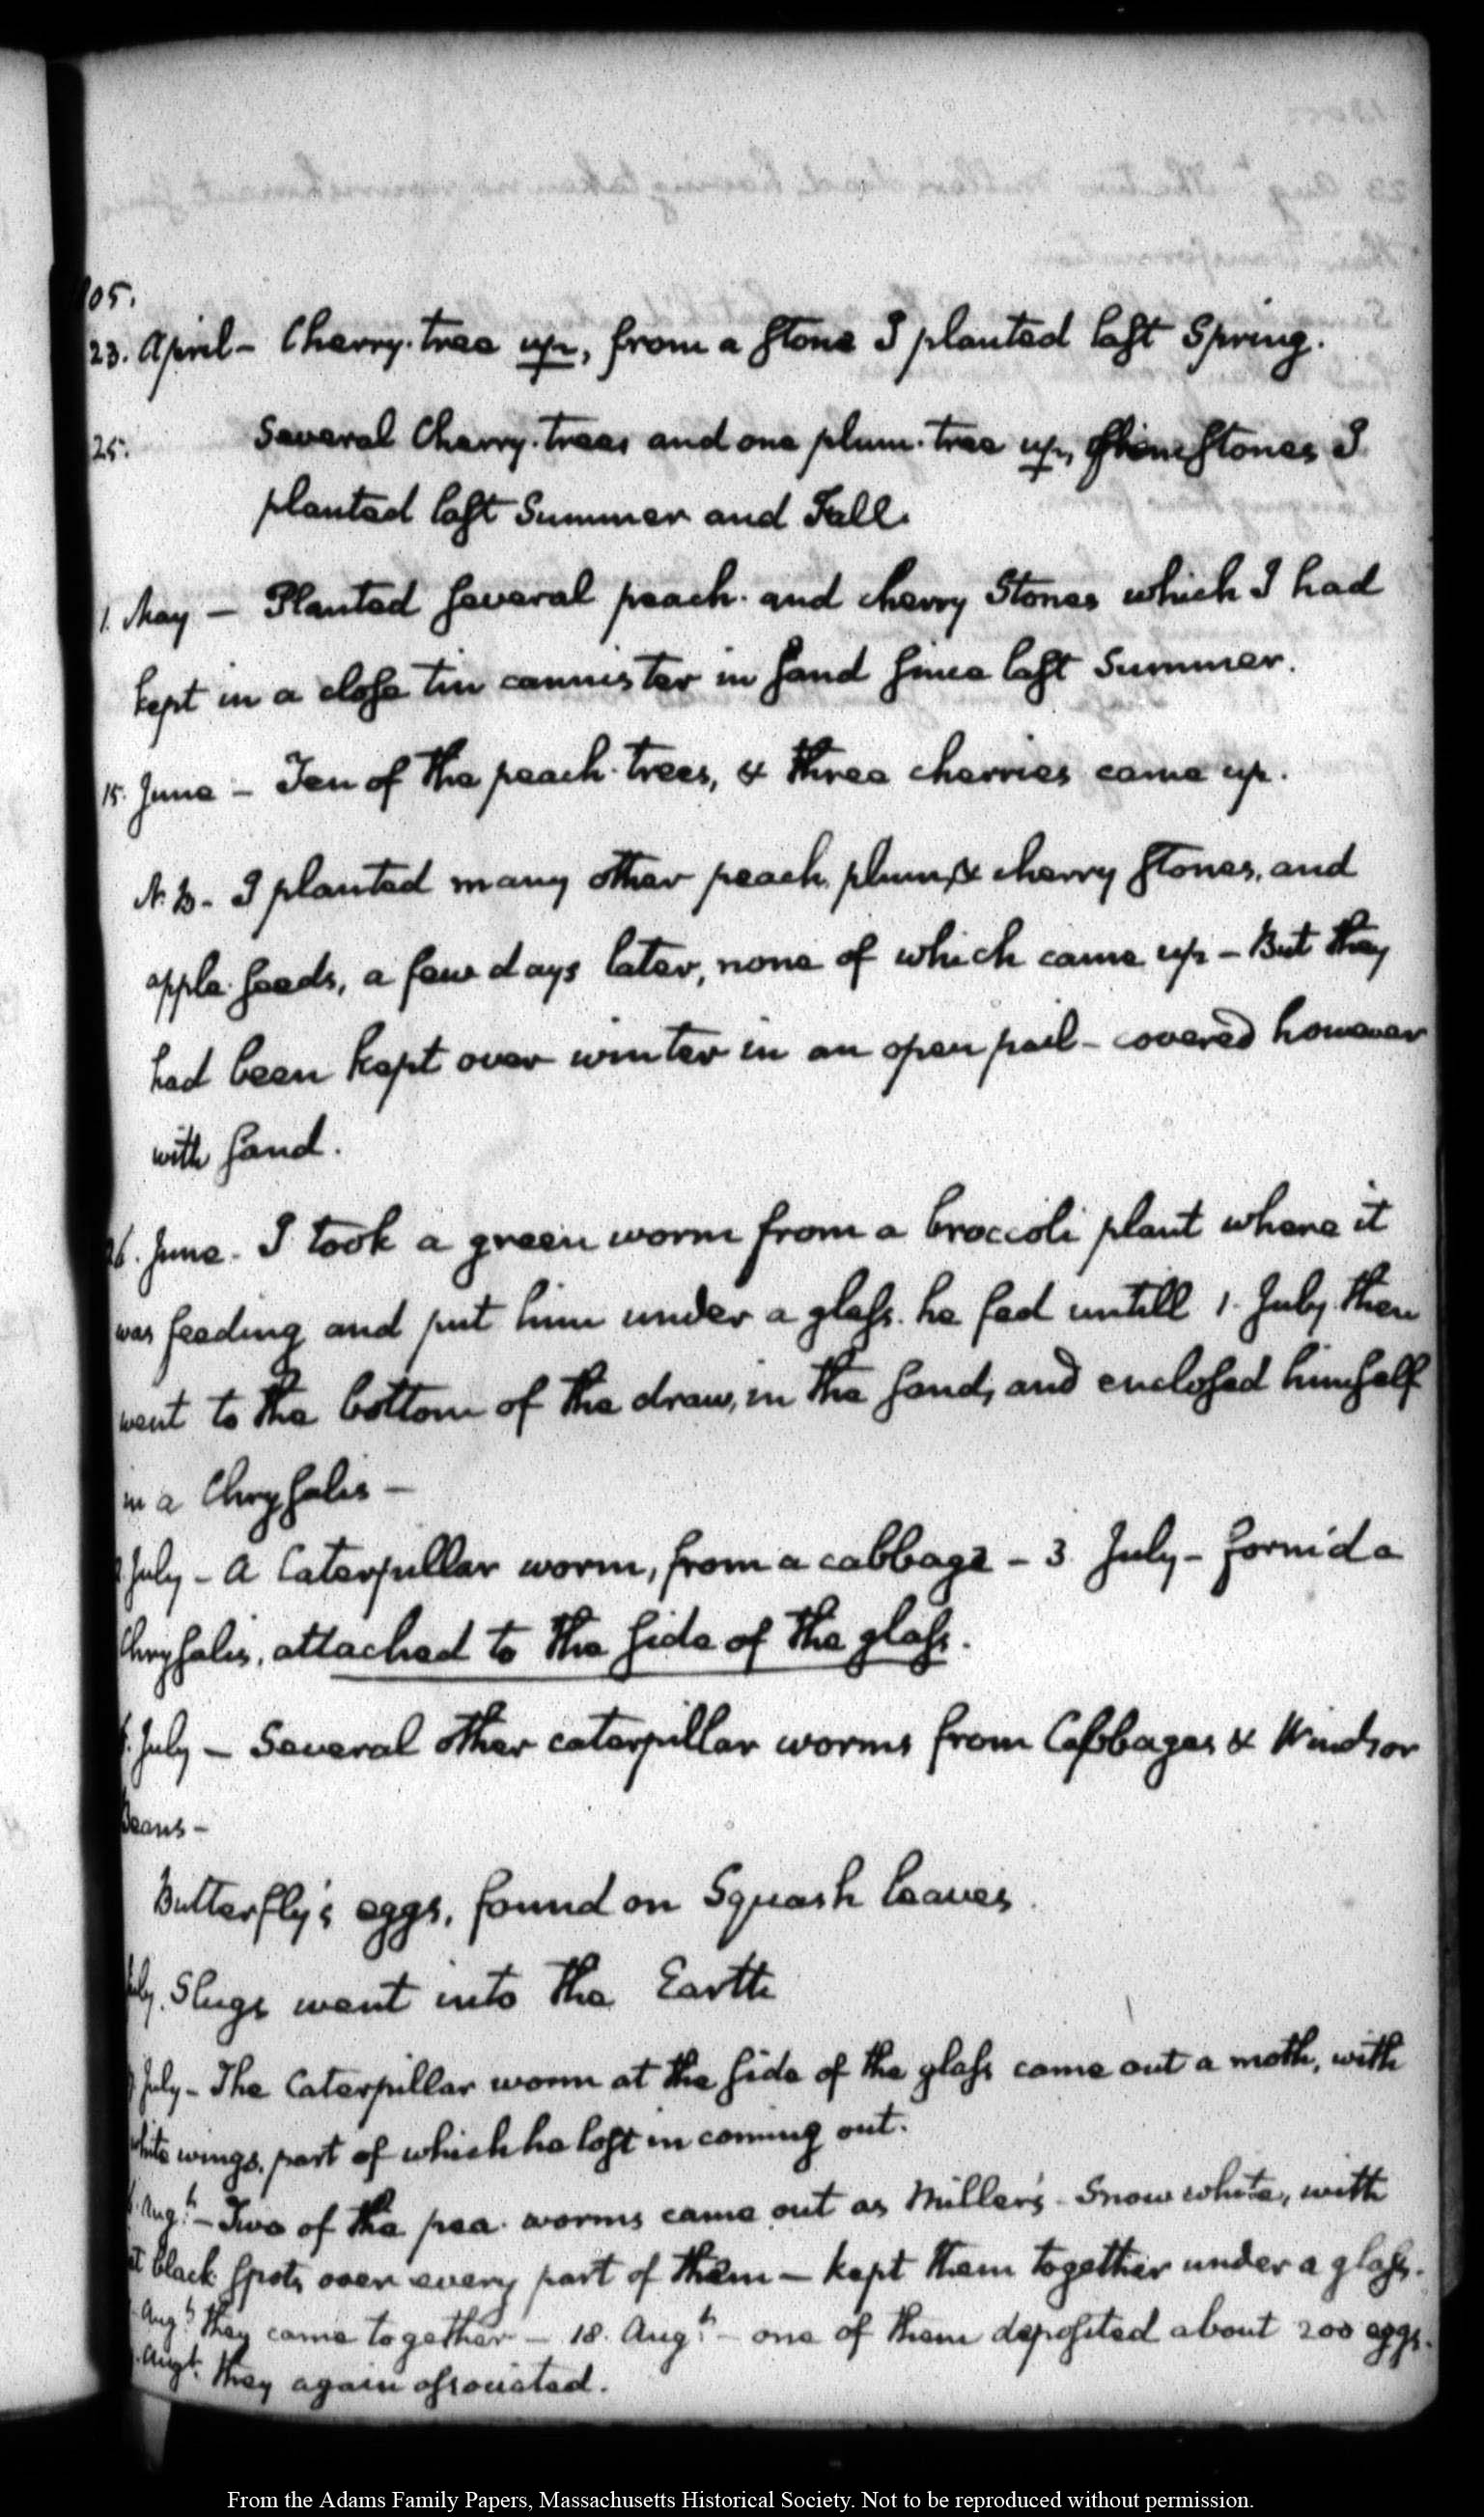 05.
23. April - Cherry-tree up, from a stone I planted last Spring.
25. Several Cherry-trees and one plum-tree up, stones I
planted last Summer and Fall.
1. May - Planted several peach- and cherry Stones which I had
kept in a close tin cannister in sand since last Summer.
15. June - Ten of the peach-trees, & three cherries came up.
N.B. - I planted many other peach, plum, & cherry stones, and
apple-seeds, a few days later, none of which came up - But they
had been kept over winter in an open pail - covered however
with sand.
June - I took a green worm from a broccoli plant where it
was feeding and put him under a glass. he fed untill 1. July then
went to the bottom of the draw, in the sand, and enclosed himself
in a Chrysalis -
July - A Caterpillar worm, from a cabbage - 3. July - form'd a
Chrysalis, attached to the side of the glass.
July - Several other caterpillar worms from Cabbages & Windsor
Beans -
Butterfly's eggs, found on Squash leaves.
July. Slugs went into the Earth
July - The Caterpillar worm at the side of the glass came out a moth, with
white wings, part of which he lost in coming out.
Augt. - Two of the pea-worms came out as Miller's - Snow white, with
black spots over every part of them - kept them together under a glass.
Augt. they came together - 18. Augt. - one of them deposited about 200 eggs.
Augt. they again associated.
From the Adams Family Papers, Massachusetts Historical Society. Not to be reproduced without permission.